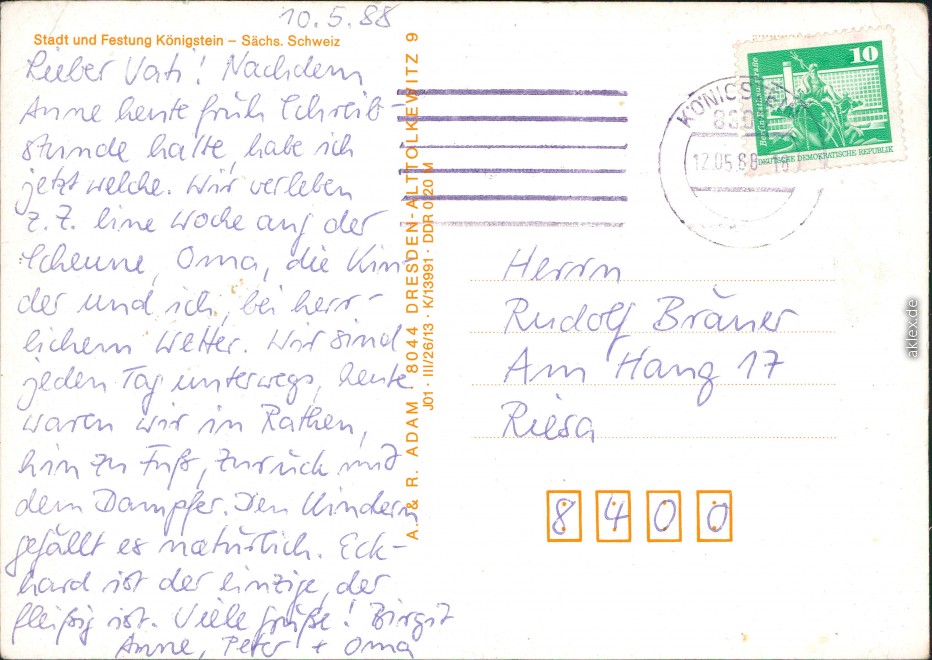 10.5.88
Stadt und Festung Königstein – Sächs. Schweiz
Lieber Vati! Nachdem
Anne heute früh Schreib-
stunde hatte, habe ich
jetzt welche. Wir verleben
z. Z. eine Woche auf der
Scheune, Oma, die Kin-
der und ich, bei herr-
lichem Wetter. Wir sind
jeden Tag unterwegs, heute
waren wir in Rathen,
hin zu Fuß, zurück mit
dem Dampfer. Den Kindern
gefällt es natürlich. Eck-
hard ist der einzige, der
fleißig ist. Viele Grüße! Birgit
Anne, Peter + Oma
A. & R. ADAM 8044 DRESDEN-ALTTOLKEWITZ 9
J01 · III/26/13 · K/13991 · DDR 0,20 M
KÖNIGSTEIN
12.05.88
10
DEUTSCHE DEMOKRATISCHE REPUBLIK
Herrn
Rudolf Bräuer
Am Hang 17
Riesa
8400
aklex.de